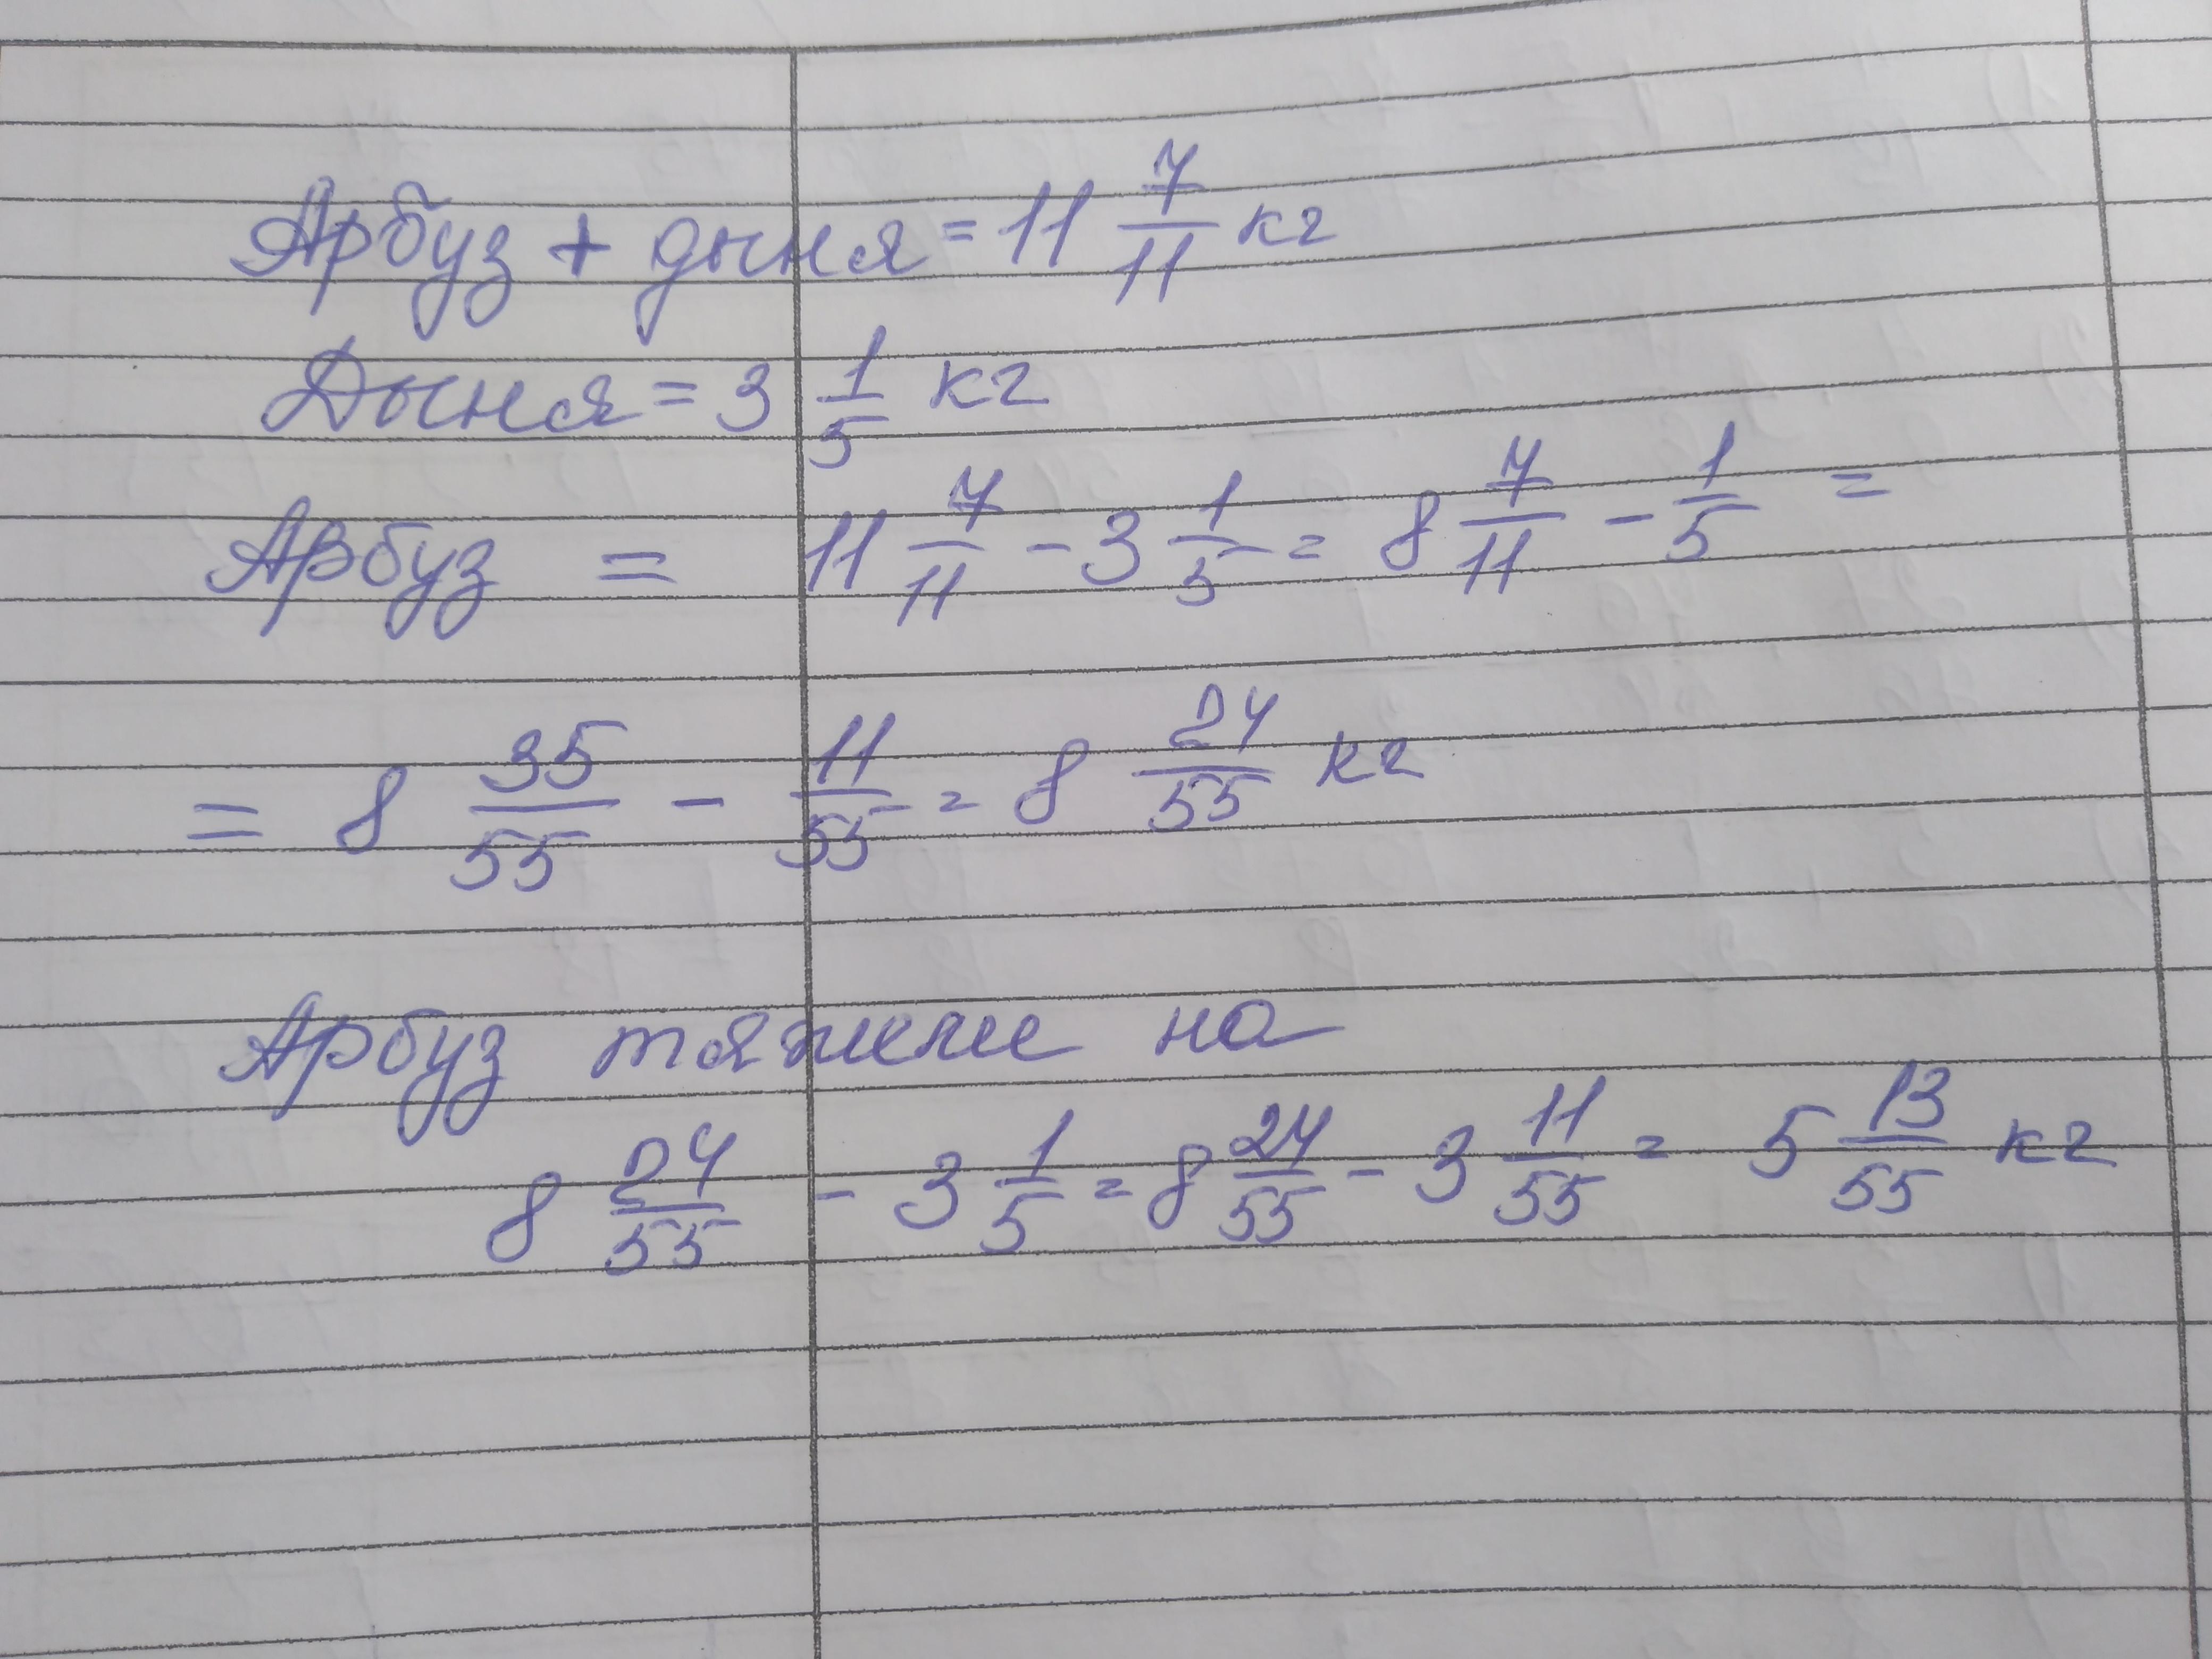 Арбуз + дыня = 11 7/11 кг
Дыня = 3 1/5 кг
Арбуз = 11 7/11 - 3 1/5 = 8 7/11 - 1/5 =
= 8 35/55 - 11/55 = 8 24/55 кг
Арбуз тяжеле на
8 24/55 - 3 1/5 = 8 24/55 - 3 11/55 = 5 13/55 кг